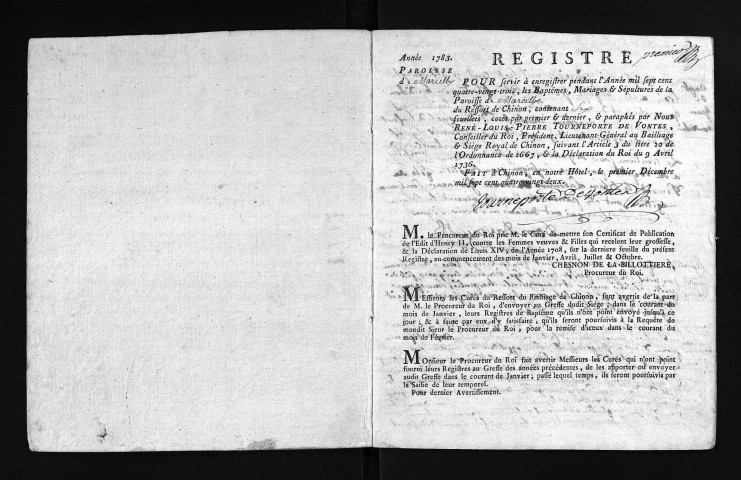 Année 1783.
REGISTRE
premier
PAROISSE
de Marcilly
POUR servir à enregistrer pendant l'Année mil sept cens
quatre-vingt-trois, les Baptêmes, Mariages & Sépultures de la
Paroisse de Marcilly
du Ressort de Chinon, contenant Six
feuillets, cotés par premier & dernier, & paraphés par Nous
RENÉ-LOUIS-PIERRE TOURNEPORTE DE VONTES,
Conseiller du Roi, Président, Lieutenant-Général au Bailliage
& Siége Royal de Chinon, suivant l'Article 3 du titre 20 de
l'Ordonnance de 1667, & la Déclaration du Roi du 9 Avril
1736.
FAIT à Chinon, en notre Hôtel, le premier Décembre
mil sept cent quatre-vingt-deux.
Tourneporte De Vontes
M. le Procureur du Roi prie M. le Curé de mettre son Certificat de Publication
de l'Edit d'Henry II, contre les Femmes veuves & Filles qui recelent leur grossesse,
& la Déclaration de Louis XIV, de l'Année 1708, sur la derniere feuille du présent
Registre, au commencement des mois de Janvier, Avril, Juillet & Octobre.
CHESNON DE LA BILLOTTIERE,
Procureur du Roi.
MEssieurs les Curés du Ressort du Bailliage de Chinon, sont avertis de la part
de M. le Procureur du Roi, d'envoyer au Greffe dudit Siége, dans le courant du
mois de Janvier, leurs Registres de Baptême qu'ils n'ont point envoyé jusqu'à ce
jour; & à faute par eux d'y satisfaire, qu'ils seront poursuivis à la Requête de
mondit Sieur le Procureur du Roi, pour la remise d'iceux dans le courant du
mois de Février.
MOnsieur le Procureur du Roi fait avertir Messieurs les Curés qui n'ont point
fourni leurs Registres au Greffe des années précédentes, de les apporter ou envoyer
audit Greffe dans le courant de Janvier; passé lequel temps, ils seront poursuivis par
la Saisie de leur temporel.
Pour dernier Avertissement.